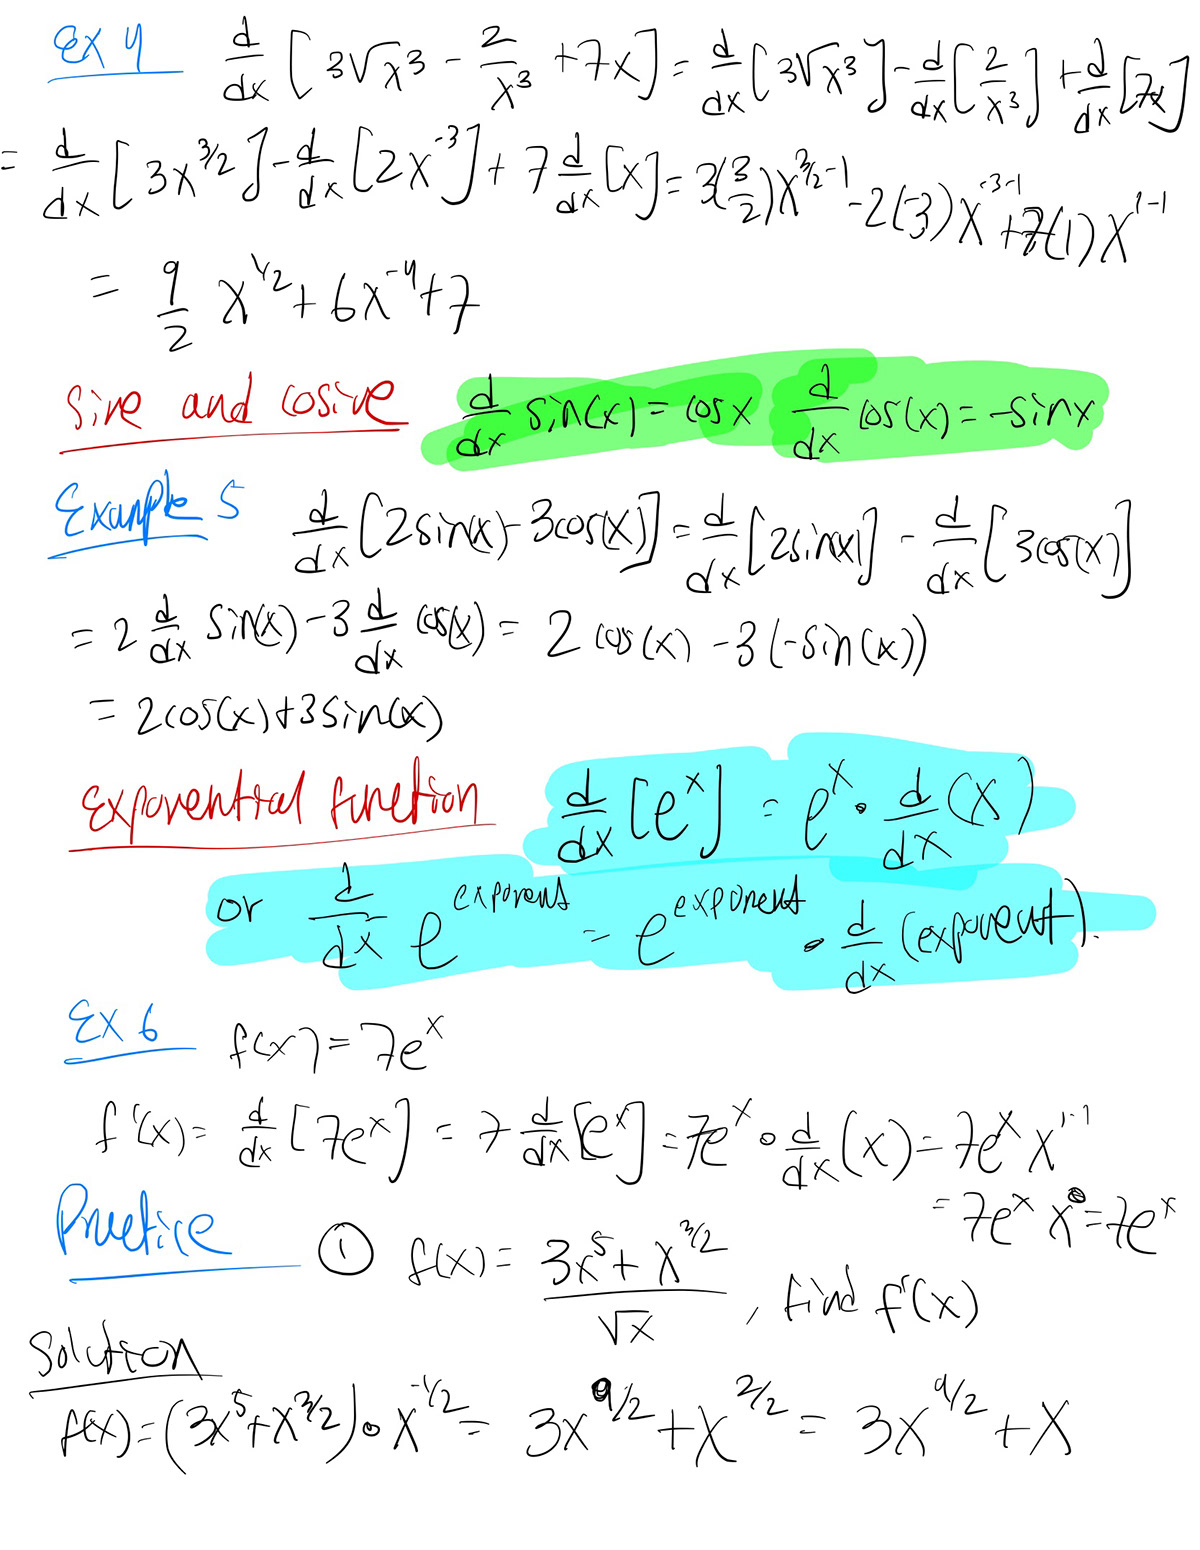 Ex 4 d/dx [3√x³ - 2/x³ + 7x] = d/dx [3√x³] - d/dx [2/x³] + d/dx [7x]
= d/dx [3x^(3/2)] - d/dx [2x^(-3)] + 7 d/dx [x] = 3(3/2)x^(3/2-1) - 2(-3)x^(-3-1) + 7(1)x^(1-1)
= 9/2 x^(1/2) + 6x^(-4) + 7
Sine and cosine d/dx sin(x) = cosx d/dx cos(x) = -sinx
Example 5 d/dx [2sin(x) - 3cos(x)] = d/dx [2sin(x)] - d/dx [3cos(x)]
= 2 d/dx sin(x) - 3 d/dx cos(x) = 2cos(x) - 3(-sin(x))
= 2cos(x) + 3sin(x)
Exponential function d/dx [e^x] = e^x · d/dx (x)
or d/dx e^exponent = e^exponent · d/dx (exponent).
Ex 6 f(x) = 7e^x
f'(x) = d/dx [7e^x] = 7 d/dx [e^x] = 7e^x · d/dx (x) = 7e^x x^(1-1)
= 7e^x x^0 = 7e^x
Practice ① f(x) = (3x^5 + x^(3/2))/√x , find f'(x)
Solution
f(x) = (3x^5 + x^(3/2)) · x^(-1/2) = 3x^(9/2) + x^(2/2) = 3x^(9/2) + x